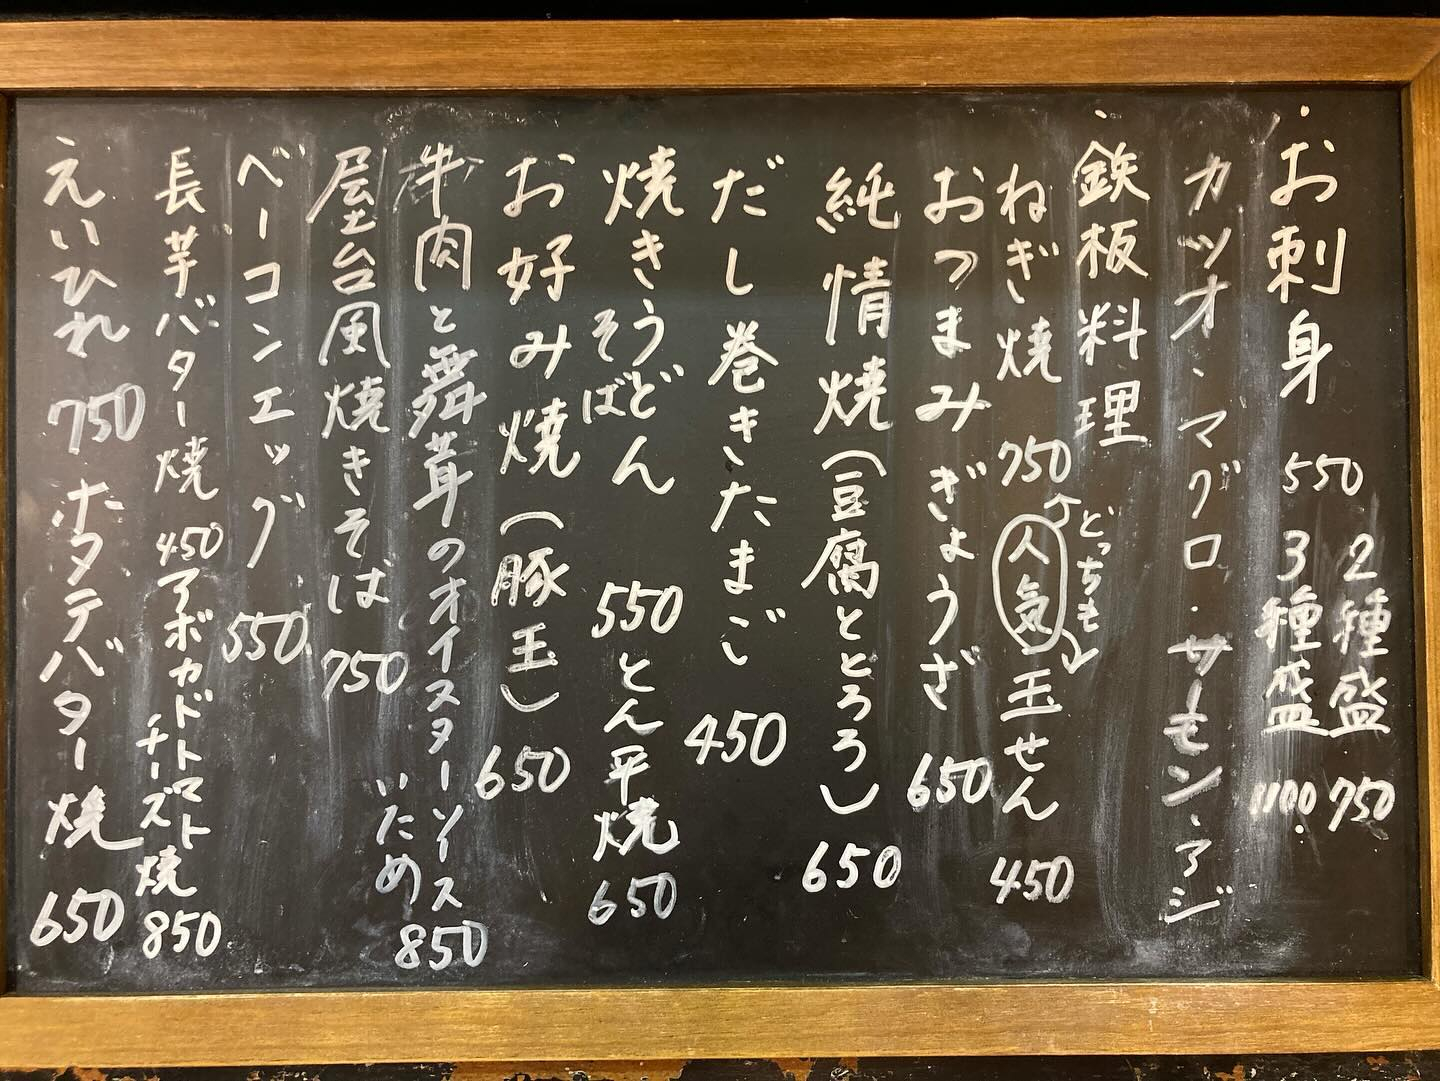 ・お刺身 550 2種盛 750
3種盛 1100
カツオ・マグロ・サーモン・アジ
・鉄板料理
ねぎ焼 750 どっちも 人気 玉せん 450
おつまみぎょうざ 650
純情焼(豆腐ととろろ) 650
だし巻きたまご 450
焼きうどん 550 とん平焼 650
そば
お好み焼(豚玉) 650
牛肉と舞茸のオイスターソース
いため 850
屋台風焼きそば 750
ベーコンエッグ 550
長芋バター焼 450 アボカドトマト
チーズ焼 850
えいひれ 750 ホタテバター焼 650